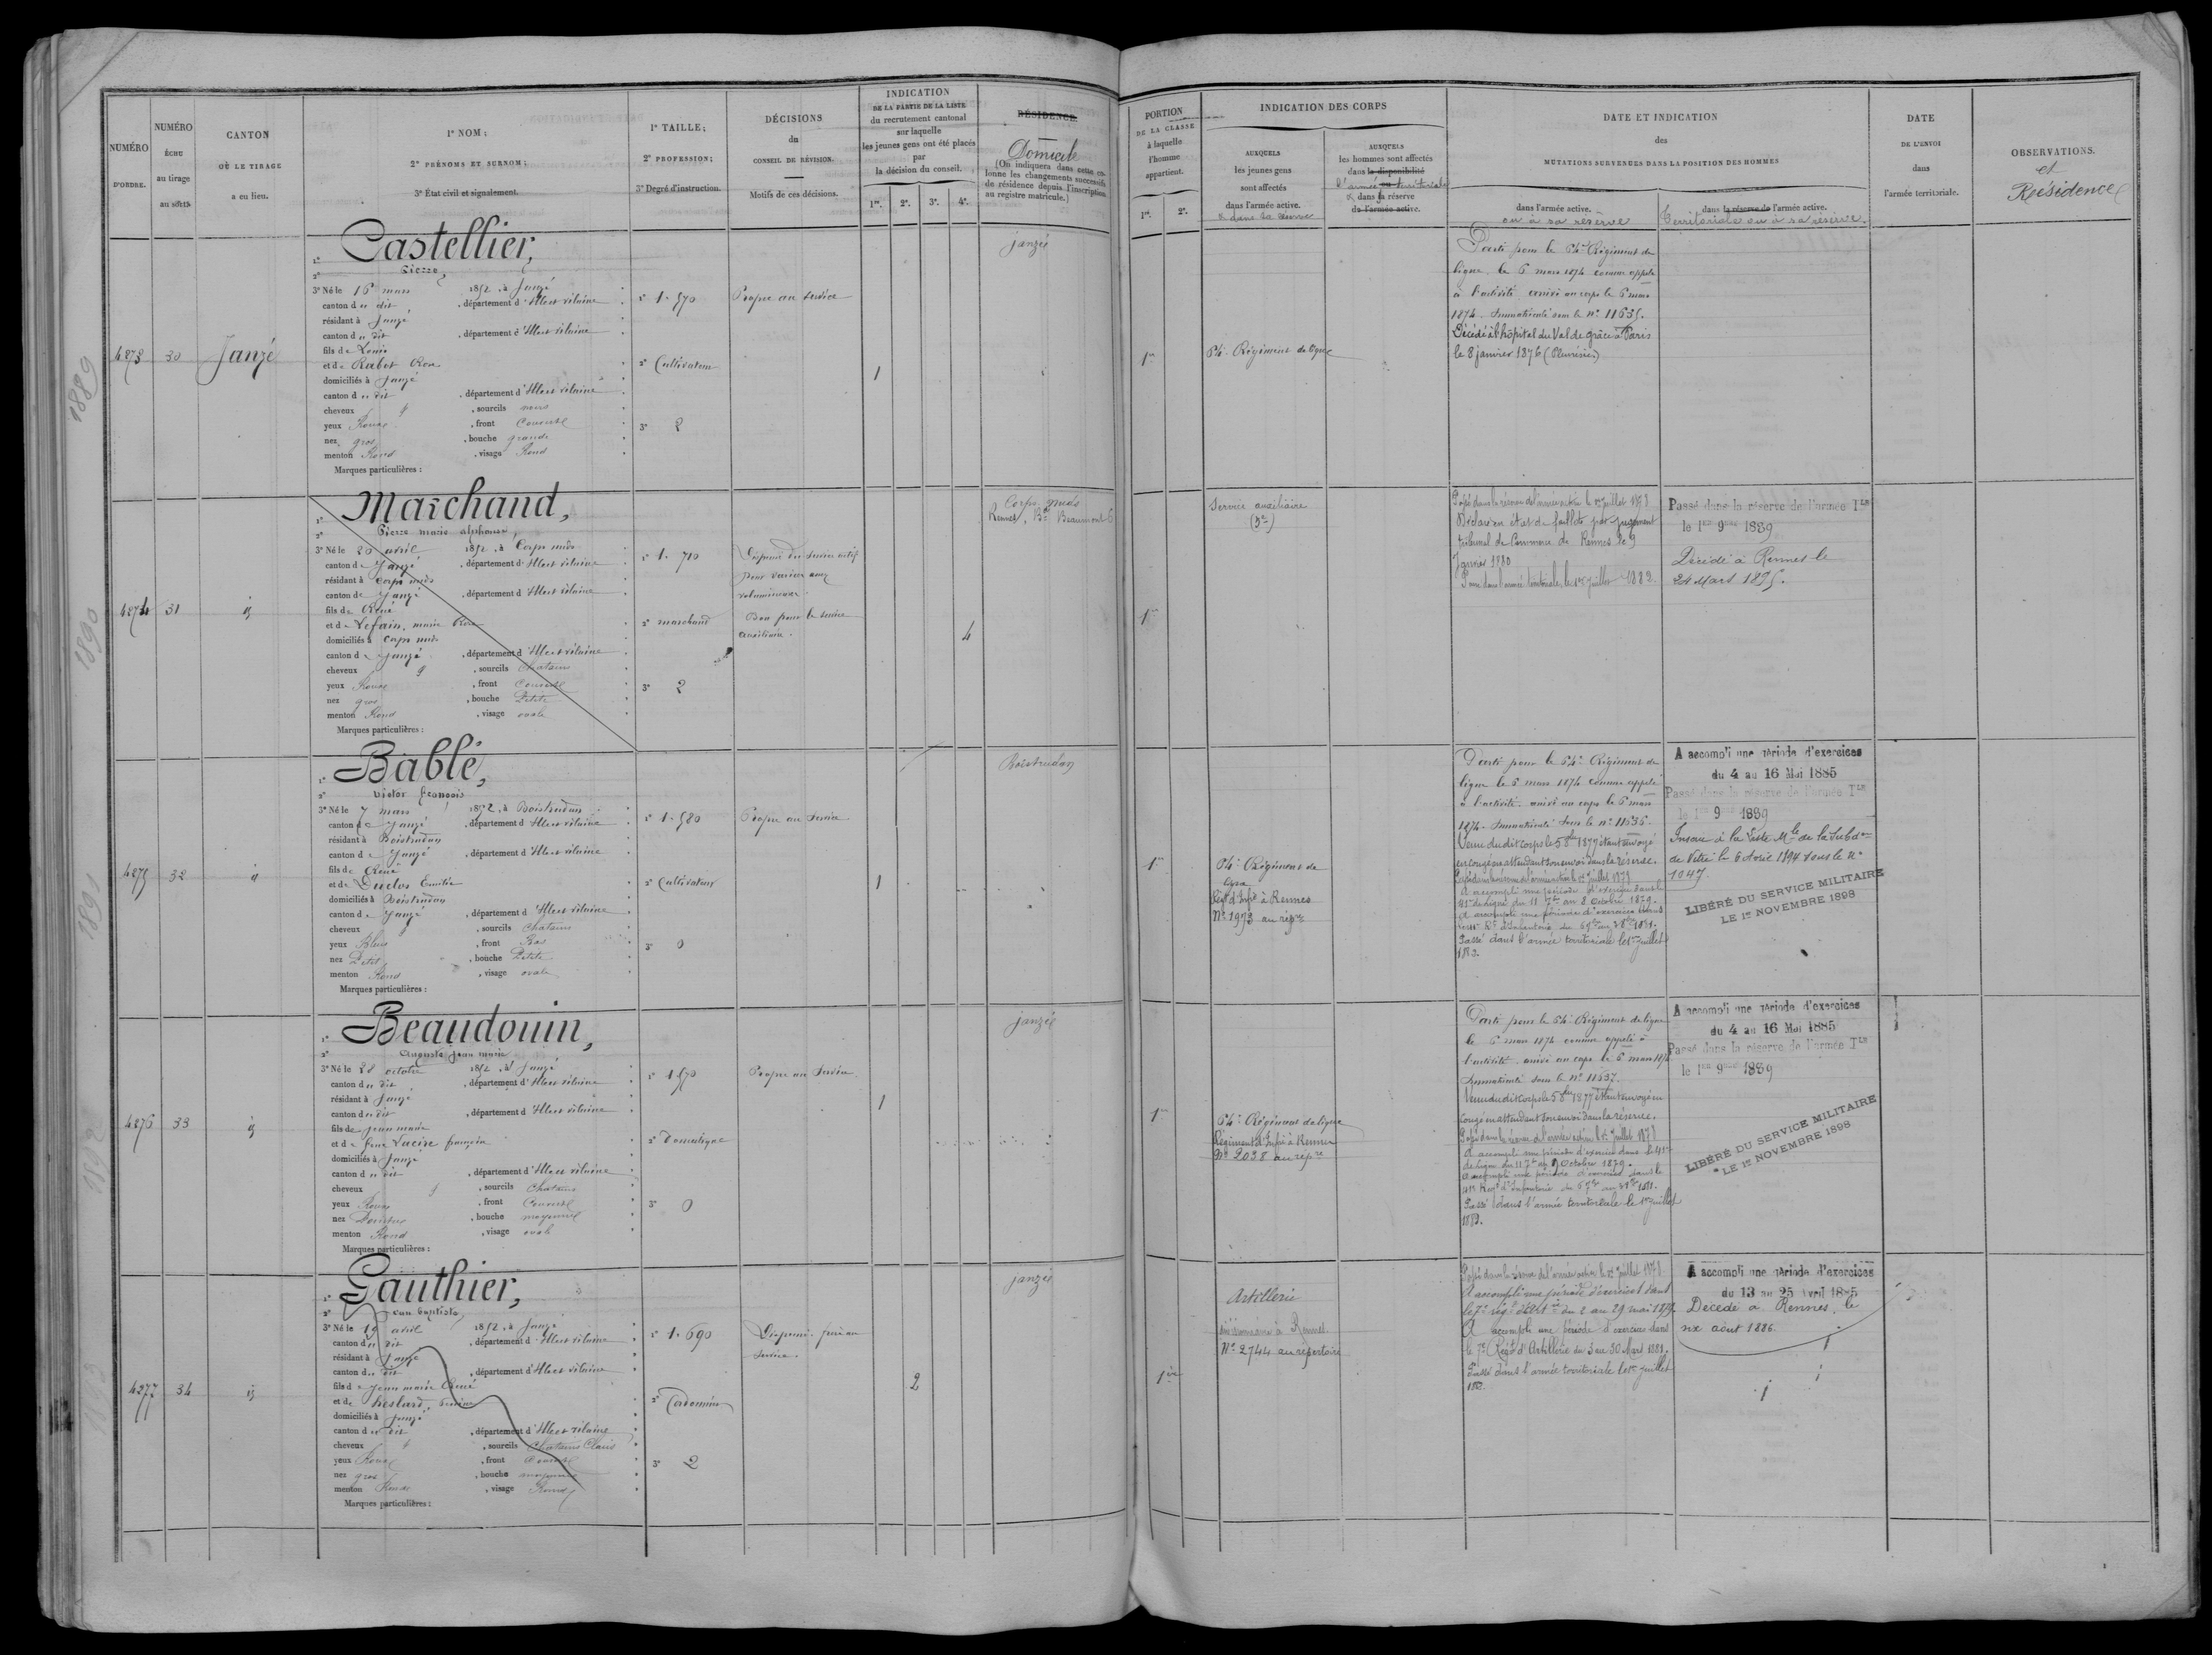 NUMÉRO
D'ORDRE.
NUMÉRO
ÉCHU
au tirage
au sort.
CANTON
OÙ LE TIRAGE
a eu lieu.
1° NOM;
2° PRÉNOMS ET SURNOM;
3° État civil et signalement.
1° TAILLE;
2° PROFESSION;
3° Degré d'instruction.
DÉCISIONS
du
CONSEIL DE RÉVISION.
Motifs de ces décisions.
INDICATION
DE LA PARTIE DE LA LISTE
du recrutement cantonal
sur laquelle
les jeunes gens ont été placés
par
la décision du conseil.
1re. 2e. 3e. 4e.
RÉSIDENCE
Domicile
(On indiquera dans cette co-
lonne les changements successifs
de résidence depuis l'inscription
au registre matricule.)
PORTION
DE LA CLASSE
à laquelle
l'homme
appartient.
1re. 2e.
INDICATION DES CORPS
AUXQUELS
les jeunes gens
sont affectés
dans l'armée active.
& dans la réserve
AUXQUELS
les hommes sont affectés
dans la disponibilité
l'armée ou territoriale
& dans sa réserve
de l'armée active.
DATE ET INDICATION
des
MUTATIONS SURVENUES DANS LA POSITION DES HOMMES
dans l'armée active.
ou à sa réserve
dans la réserve de l'armée active.
Territoriale ou à sa réserve.
DATE
DE L'ENVOI
dans
l'armée territoriale.
OBSERVATIONS.
et
Résidence
1889
1890
1891
1892
4273
30
Janzé
1° Castellier,
2° Pierre,
3° Né le 16 mars 1852, à Janzé
canton d u dit, département d'Ille et vilaine
résidant à Janzé
canton d u dit, département d'Ille et vilaine
fils de Louis
et de Rabot
domiciliés à Janzé
canton d u dit, département d'Ille et vilaine
cheveux, sourcils noirs
yeux Roux, front Couvert
nez gros, bouche grande
menton Rond, visage Rond
Marques particulières :
1° 1. 570
2° Cultivateur
3° 2
Propre au service
1
janzé
1re
64e Régiment de ligne
Parti pour le 64e Régiment de
ligne le 6 mars 1874 comme appelé
à l'activité arrivé au corps le 6 mars
1874. Immatriculé sous le n° 11635.
Décédé à l'hôpital du Val de grâce à Paris
le 8 janvier 1876 (Pleurésie)
4274
31
id
1° Marchand,
2° Pierre marie alphonse,
3° Né le 20 avril 1852, à Corps nuds
canton de Janzé, département d'Ille et vilaine
résidant à Corps nuds
canton de Janzé, département d'Ille et vilaine
fils de René
et de Lefain, marie
domiciliés à Corps nuds
canton de Janzé, département d'Ille et vilaine
cheveux, sourcils Chatains
yeux Roux, front Couvert
nez gros, bouche Petite
menton Rond, visage ovale
Marques particulières :
1° 1. 710
2° marchand
3° 2
Dispensé du service actif
pour varices
volumineuses.
Bon pour le service
auxiliaire.
4
Corps-nuds
Rennes, Bd Beaumont 6
1re
Service auxiliaire
Passé dans la réserve de l'armée active le 1er juillet 1878
Déclaré en état de faillite par jugement
tribunal de Commerce de Rennes le 9
Janvier 1880
Passé dans l'armée territoriale, le 1er juillet 1882.
Passé dans la réserve de l'armée Tle
le 1er 9bre 1889
Décédé à Rennes le
24 Mars 1895.
4275
32
id
1° Bablé,
2° Victor françois
3° Né le 7 mars 1852, à Boistrudan
canton de Janzé, département d'Ille et vilaine
résidant à Boistrudan
canton de Janzé, département d'Ille et vilaine
fils de René
et de Duclos Emilie
domiciliés à Boistrudan
canton de Janzé, département d'Ille et vilaine
cheveux, sourcils Chatains
yeux Bleus, front Bas
nez Petit, bouche Petite
menton Rond, visage ovale
Marques particulières :
1° 1. 580
2° Cultivateur
3° 0
Propre au service
1
Boistrudan
1re
64e Régiment de
ligne
Régt d'Infie à Rennes
N° 1973 au répre
Parti pour le 64e Régiment de
ligne le 6 mars 1874 comme appelé
à l'activité. arrivé au corps le 6 mars
1874. Immatriculé sous le n° 11636.
Venu dudit corps le 5 8bre 1877 étant envoyé
en congé en attendant son envoi dans la réserve.
Passé dans la réserve de l'armée active le 1er juillet 1878
A accompli une période d'exercice dans le
41e de ligne du 11 7bre au 8 octobre 1879.
A accompli une période d'exercices dans
le 41e Rt d'Infanterie du 6 7bre au 3 8bre 1881.
Passé dans l'armée territoriale le 1er juillet
1882.
A accompli une période d'exercices
du 4 au 16 Mai 1885
Passé dans la réserve de l'armée Tle
le 1er 9 1889
Inscrit à la Liste Mle de la Subdon
de Vitré le 6 Avril 1894 sous le n°
1047.
LIBÉRÉ DU SERVICE MILITAIRE
LE 1er NOVEMBRE 1898
4276
33
id
1° Beaudouin,
2° Auguste jean marie
3° Né le 28 octobre 1852, à Janzé
canton d u dit, département d'Ille et vilaine
résidant à Janzé
canton d u dit, département d'Ille et vilaine
fils de jean marie
et de feue Lucire françoise
domiciliés à Janzé
canton d u dit, département d'Ille et vilaine
cheveux, sourcils Chatains
yeux Roux, front Couvert
nez, bouche moyenne
menton Rond, visage ovale
Marques particulières :
1° 1. 570
2° Domestique
3° 0
Propre au service
1
janzé
1re
64e Régiment de ligne
Régiment d'Infie à Rennes
N° 2038 au répre
Parti pour le 64e Régiment de ligne
le 6 mars 1874 comme appelé à
l'activité arrivé au corps le 6 mars 1874
Immatriculé sous le n° 11637.
Venu dudit corps le 5 8bre 1877 étant envoyé en
congé en attendant son envoi dans la réserve.
Passé dans la réserve de l'armée active le 1er juillet 1878
A accompli une période d'exercice dans le 41e
de ligne du 11 7bre au 9 Octobre 1879.
A accompli une période d'exercices dans le
41e Regt d'Infanterie du 6 7bre au 3 8bre 1881.
Passé dans l'armée territoriale le 1er juillet
1882.
A accompli une période d'exercices
du 4 au 16 Mai 1885
Passé dans la réserve de l'armée Tle
le 1er 9bre 1889
LIBÉRÉ DU SERVICE MILITAIRE
LE 1er NOVEMBRE 1898
4277
34
id
1° Gauthier,
2° Jean baptiste,
3° Né le 19 avril 1852, à Janzé
canton d u dit, département d'Ille et vilaine
résidant à Janzé
canton d u dit, département d'Ille et vilaine
fils de Jean marie René
et de
domiciliés à Janzé
canton d u dit, département d'Ille et vilaine
cheveux, sourcils Chatains Clairs
yeux Roux, front Couvert
nez gros, bouche moyenne
menton Rond, visage Rond
Marques particulières :
1° 1. 690
2° Cordonnier
3° 2
Dispensé. frère au
service.
2
janzé
1re
Artillerie
à Rennes
N° 2744 au répertoire
Passé dans la réserve de l'armée active le 1er juillet 1878
A accompli une période d'exercices dans
le 7e régt d'Artie du 2 au 29 mai 1879.
A accompli une période d'exercices dans
le 7e Régt d'Artillerie du 3 au 30 Mars 1881.
Passé dans l'armée territoriale le 1er juillet
1882.
A accompli une période d'exercices
du 13 au 25 Avril 1885
Décédé à Rennes, le
six août 1886.